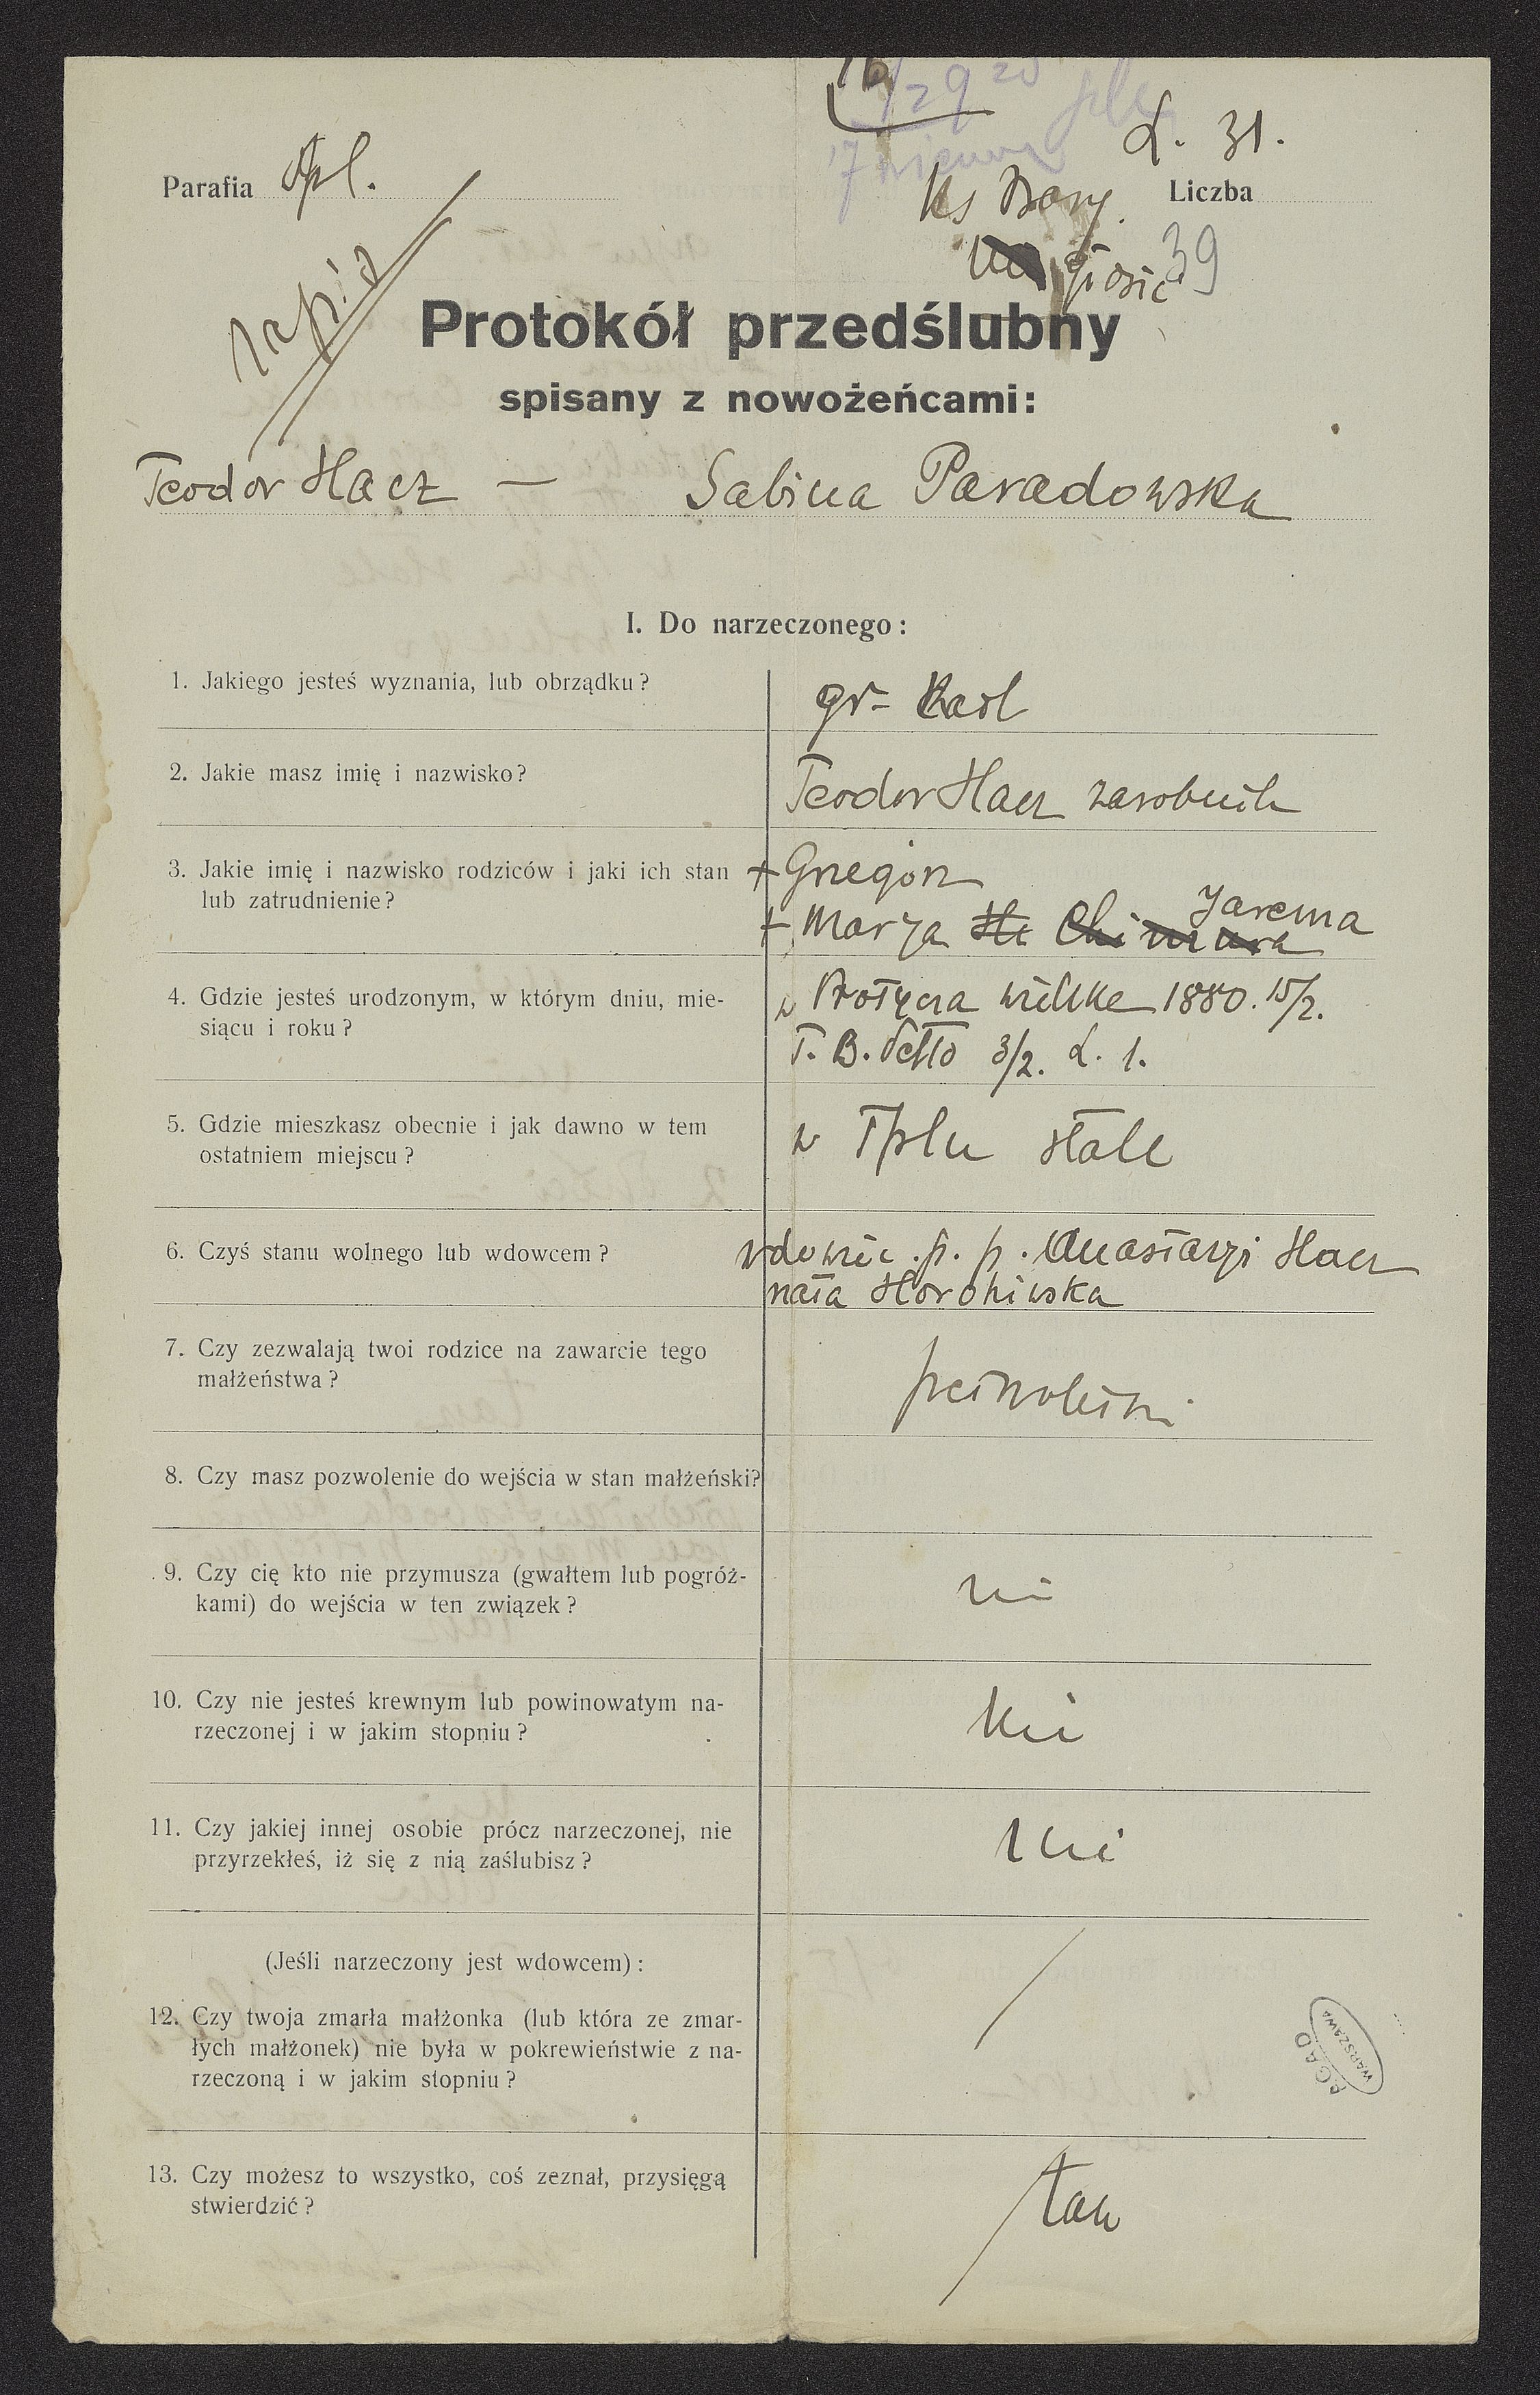 29
L. 31.
Parafia Tpl.
Ks
Liczba
39
głosić
zapis
Protokół przedślubny
spisany z nowożeńcami:
Teodor Hacz — Sabina Paradowska
I. Do narzeczonego:
1. Jakiego jesteś wyznania, lub obrządku?
gr-
2. Jakie masz imię i nazwisko?
Teodor Hacz zarobnik
3. Jakie imię i nazwisko rodziców i jaki ich stan
lub zatrudnienie?
+ Grzegorz
Jarema
+ Marya
4. Gdzie jesteś urodzonym, w którym dniu, mie-
siącu i roku?
w wielkie 1880. 15/2.
T. B. detto 3/2. L. 1.
5. Gdzie mieszkasz obecnie i jak dawno w tem
ostatniem miejscu?
w Tplu stale
6. Czyś stanu wolnego lub wdowcem?
wdowiec p. p. Anastazyi Hacz
nata Horohiwska
7. Czy zezwalają twoi rodzice na zawarcie tego
małżeństwa?
pełnoletni
8. Czy masz pozwolenie do wejścia w stan małżeński?
9. Czy cię kto nie przymusza (gwałtem lub pogróż-
kami) do wejścia w ten związek?
nie
10. Czy nie jesteś krewnym lub powinowatym na-
rzeczonej i w jakim stopniu?
nie
11. Czy jakiej innej osobie prócz narzeczonej, nie
przyrzekłeś, iż się z nią zaślubisz?
nie
(Jeśli narzeczony jest wdowcem):
12. Czy twoja zmarła małżonka (lub która ze zmar-
łych małżonek) nie była w pokrewieństwie z na-
rzeczoną i w jakim stopniu?
/
AGAD
WARSZAWA
13. Czy możesz to wszystko, coś zeznał, przysięgą
stwierdzić?
tak